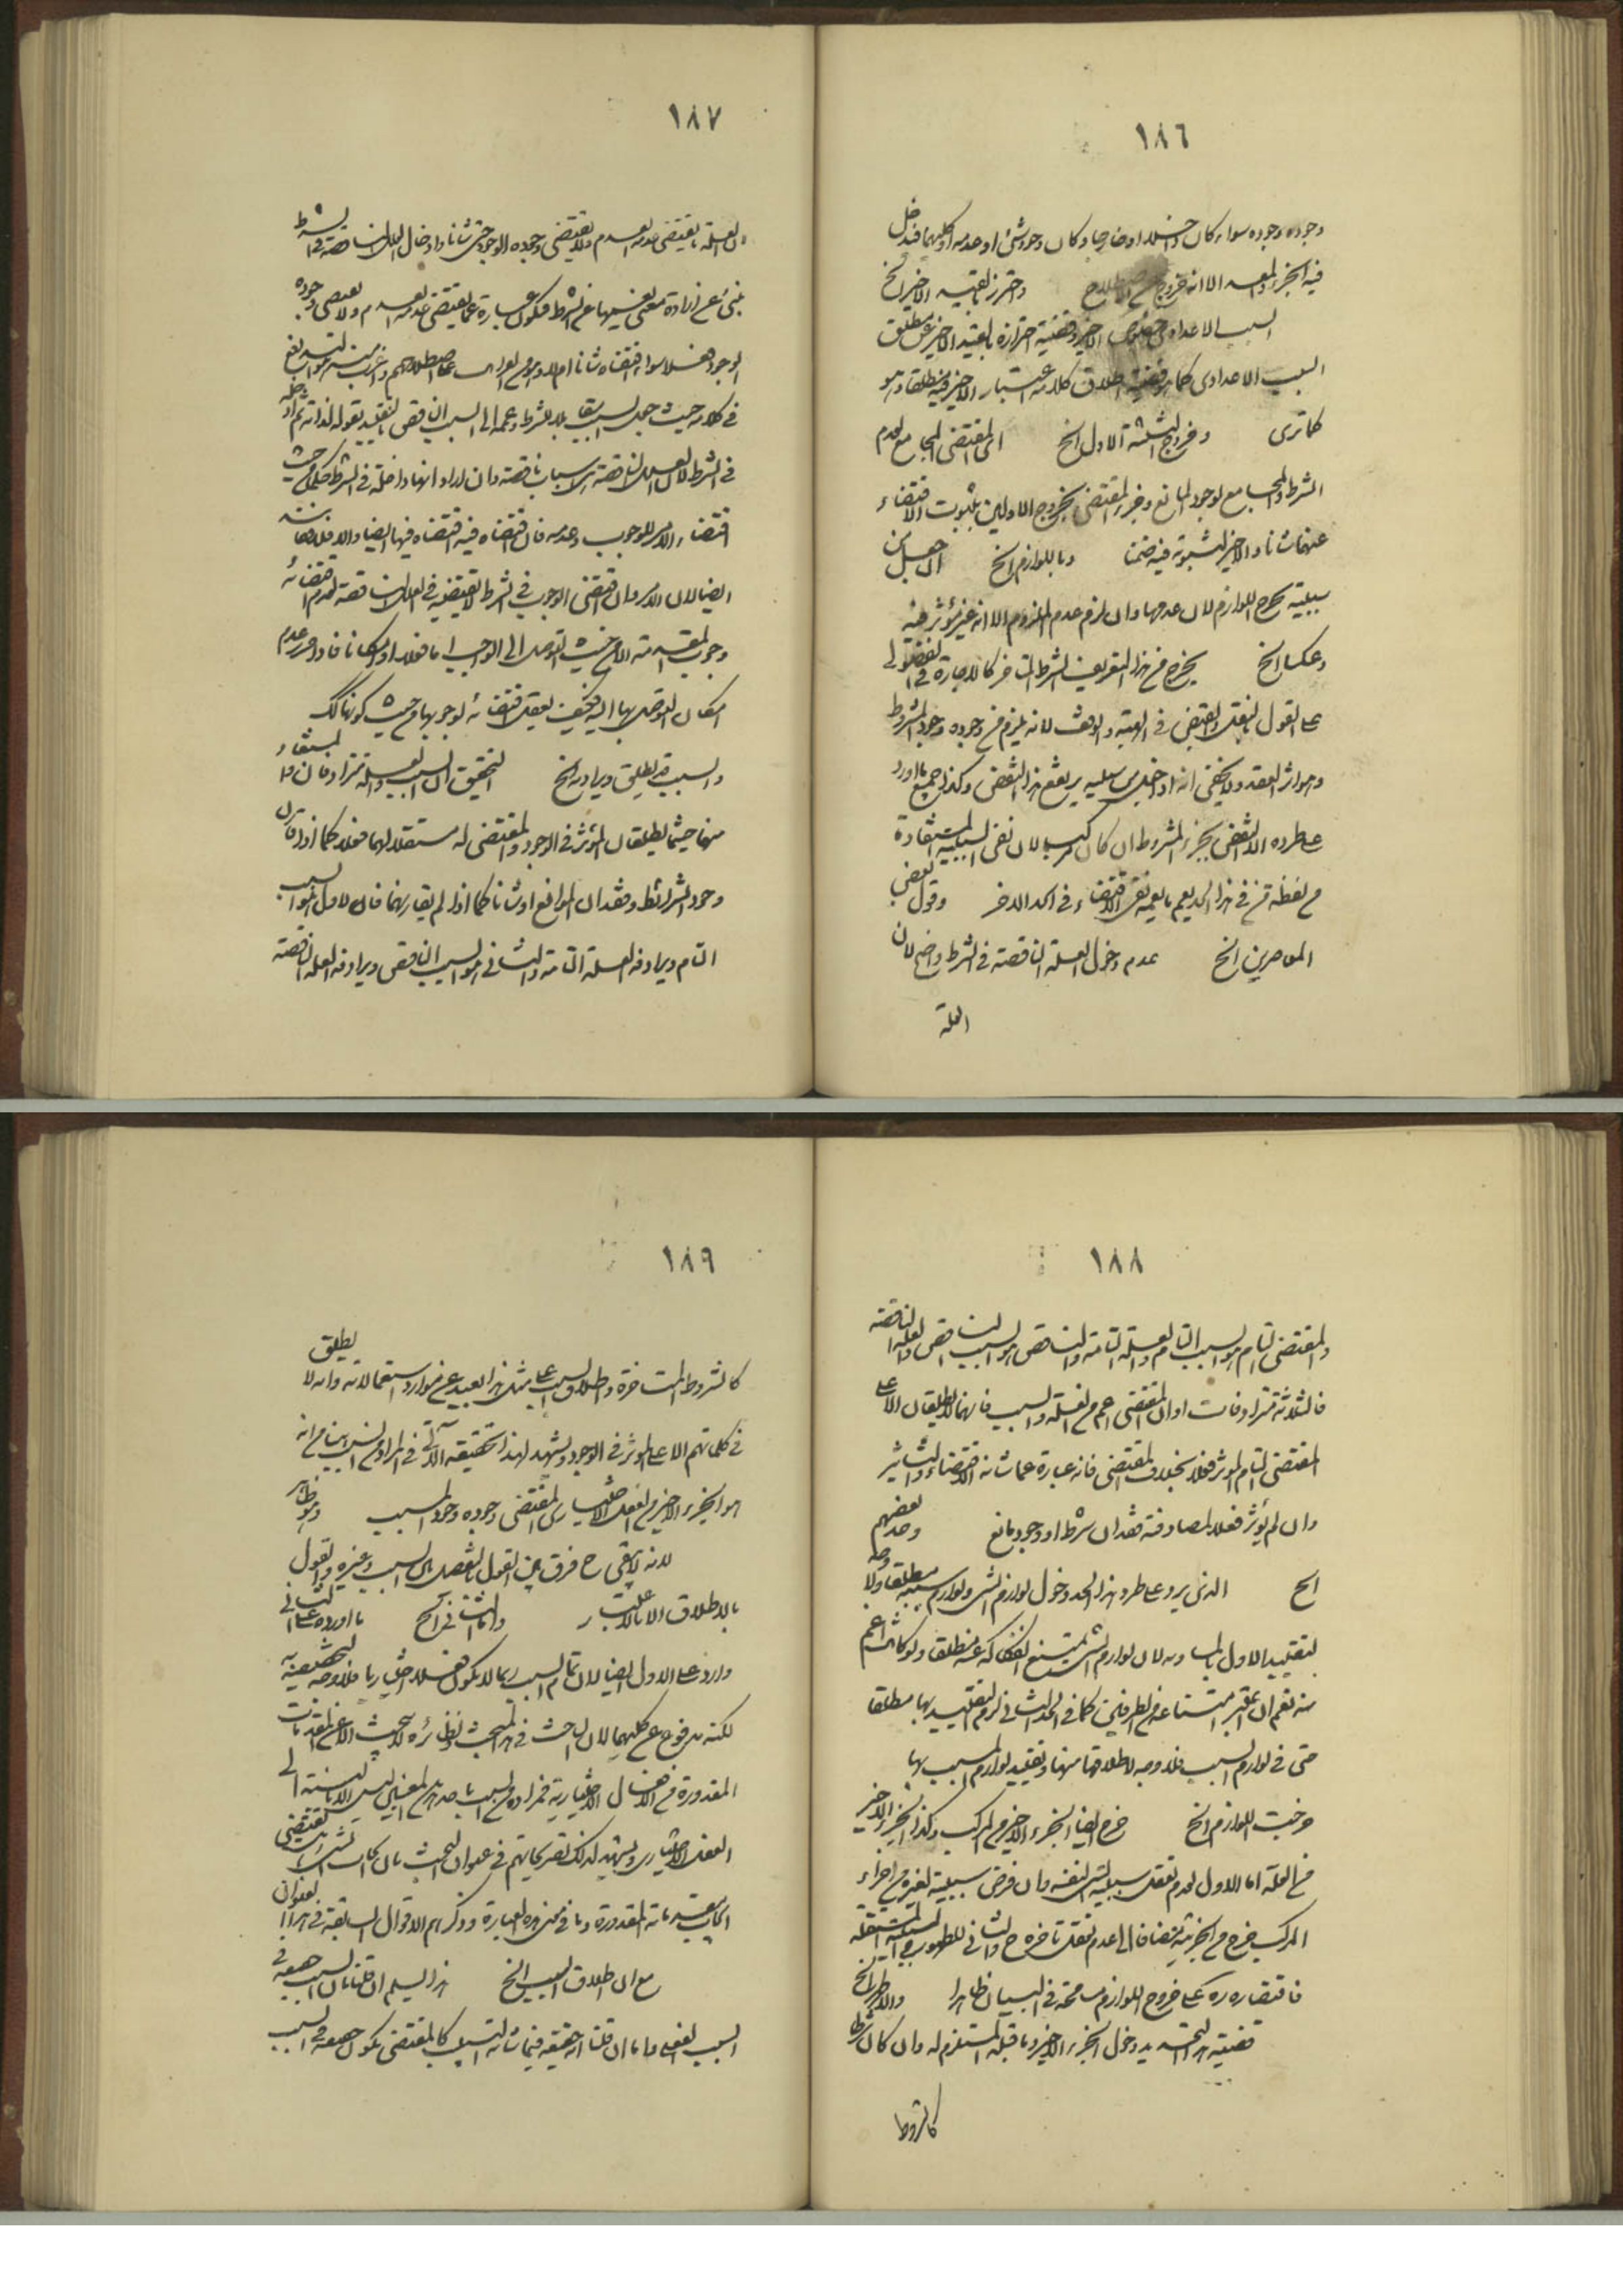 ١٨٦
وجوده وجوده سواء كان داخلا او خارجا وكان وجود شئ او عدمه او كليهما فيدخل
فيه الجزء والمعد الا انه خروج عن الاصطلاح واحترز بالقيد الاخير الخ
السبب الاعدادى الاخير وقضية احترازه بالقيد الاخير عن مطلق
السبب الاعدادى كما هو قضية اطلاق كلامه اعتبار الاخير فيه مطلقا وهو
كما ترى وخروج الثلثة الاول الخ اى المقتضى المجامع لعدم
الشرط والمجامع لوجود المانع وجزء المقتضى بخروج الاولين بثبوت الاقتضاء
عنهما شانا والاخير لثبوته فيه ضمنا وباللوازم الخ
سببية تخرج اللوازم لان عدمها وان لزم عدم الملزوم الا انه غير مؤثر فيه
وعكسا الخ يخرج من هذا التعريف الشرط المتاخر كالاجازة فى الفضولى
على القول بالنقل والقبض فى الهبة والوقف لانه يلزم من وجوده وجود المشروط
وهو اثر العقد ولا يخفى ان يرتفع هذا النقض وكذا جميع ما اورد
على طرده الا النقض بجزء المشروط ان كان مركبا لان نفى السببية المستفادة
من لفظة من فى هذا الحد يعم ما يعمه نفى الاقتضاء فى الحد الاخر وقول بعض
المعاصرين الخ عدم دخول العلة الناقصة فى الشرط واضح لان
العلة
١٨٧
العلة ما يقتضى عدمه العدم ولا يقتضى وجوده الوجود حتى شانا وادخال العلل الناقصة فى الشرط
ينبئ عن ارادة معنى نفسيهما من الشرط فيكون عبارة عما يقتضى عدمه العدم ولا يقتضى وجوده
الوجود فعلا سواء اقتضاه شانا ام لا وهو
فى كلامه حيث جعل السبب مقابلا للشرط وعمه الى السبب الناقص بالتقييد بقوله لذاته ثم ادخله
فى الشرط لان العلل الناقصة هى اسباب ناقصة وان اراد انها داخلة فى الشرط حكما من حيث
اقتضاء الامر للوجوب وعدمه فان اقتضاه فيه اقتضاه فيها ايضا والا فلا
ايضا لان الامر وان اقتضى الوجوب فى الشرط لا يقتضيه فى العلل الناقصة لعدم اقتضائه
وجوب المقدمة الا من حيث التوصل الى الواجب اما فعلا او امكانا فاذا فرض عدم
امكان التوصل بها اليه فكيف يعقل اقتضائه لوجوبها من حيث كونها كك
والسبب قد يطلق ويراد به الخ التحقيق ان السبب والعلة مترادفان والمستفاد
منهما حيثما يطلقان المؤثر فى الوجود والمقتضى له مستقلا لهما فعلا كما اذا قارن
وجود الشرائط وفقدان الموانع او شانا كما اذا لم يقارنهما فان الاول هو السبب
التام ويرادفه العلة التامة والثانى هو السبب الناقص ويرادفه العلة الناقصة
١٨٨
والمقتضى التام هو السبب التام والعلة التامة والناقص هو السبب الناقص والعلة الناقصة
فالثلاثة مترادفات او ان المقتضى اعم من العلة والسبب فانهما لا يطلقان الا على
المقتضى التام المؤثر فعلا بخلاف المقتضى فانه عبارة عما شانه الاقتضاء والتأثير
وان لم يؤثر فعلا لمصادفته فقدان شرط او وجود مانع وحد بعضهم
الخ الذى يرد على طرد هذا الحد دخول لوازم الشئ ولوازم سببه مطلقا ولا
لتقييد الاول لان لوازم الشئ ما يمتنع انفكاكه عنه مطلقا ولو كان اعم
منه نعم ان اعتبر امتناعه من الطرفين كما فى الحد الثانى لزم التقييد بها مطلقا
حتى فى لوازم السبب فلا وجه لاطلاقها منها وتقييد لوازم المسبب بها
خرجت اللوازم الخ خرج ايضا الجزء الاخير من المركب وكذا الجزء الاخير
من العلة اما الاول لعدم تعقل سببية الشئ لنفسه وان فرض سببية لغيره من اجزاء
المركب خرج من الجزئية مضافا الى عدم تعقل تاخره ح والثانى
فاقتصاره ره على خروج اللوازم مسامحة فى البيان ظاهرا والاظهر الخ
قضية هذا التحديد دخول الجزء الاخير وما قبله المستلزم له وان كان شرطا
كالشروط
١٨٩
كالشروط المتاخرة واطلاق السبب على مثل هذا بعيد عن موارد استعمالاته وانه لا يطلق
فى كلماتهم الا على المؤثر فى الوجود ويشهد لهذا تحقيقه الآتى فى المراد من السبب هنا من انه
هو الجزء الاخير من الفعل الاختيارى المقتضى وجوده وجود المسبب وهو ظاهر
لانه لا يبقى ح فرق بين القول بالتفصيل بين السبب وغيره والقول
بالاطلاق الا بالاعتبار واما الثانى الخ ما اورده على الثانى
وارد على الاول ايضا لان تمام السبب ربما لا يكون فعلا اختياريا فلا وجه لتخصيصه به
لكنه مدفوع عن كليهما لان الباحث فى هذا المبحث ونظائره لا يبحث الا عن المقدمات
المقدورة من الافعال الاختيارية فمراده بالسبب باحد هذين المعنيين ليس الا بالنسبة الى
الفعل الاختيارى ويشهد لذلك تصريحاتهم فى عنوان البحث بان ايجاب الشئ هل يقتضى
ايجاب مقدماته المقدورة وما فى معنى هذه العبارة وذكرهم الاقوال السابقة فى هذا العنوان
مع ان اطلاق السبب الخ هذا يسلم ان قلنا بان السبب حقيقة فى
السبب الفعلى واما ان قلنا انه حقيقة فيما شانه التسبيب كالمقتضى يكون حقيقة فى السبب